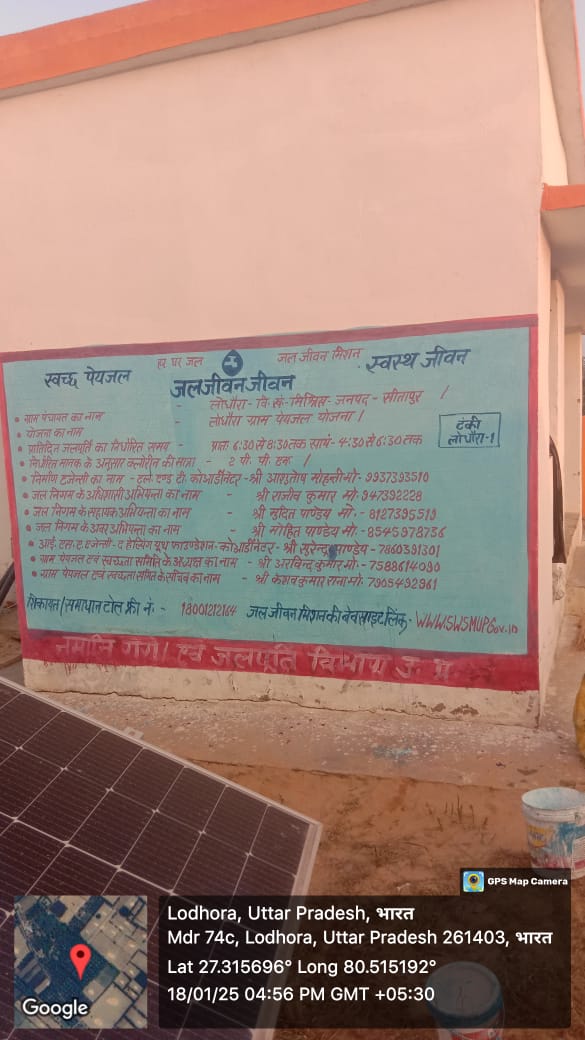 हर घर जल
जल जीवन मिशन
स्वच्छ पेयजल
स्वस्थ जीवन
जल जीवन जीवन
• ग्राम पंचायत का नाम - लोधौरा - वि. खं. मिश्रिख - जनपद - सीतापुर /
• योजना का नाम - लोधौरा ग्राम पेयजल योजना /
• प्रतिदिन जलपूर्ति का निर्धारित समय - प्रातः 6:30 से 8:30 तक सायं - 4:30 से 6:30 तक
टंकी
लोधौरा-1
• निर्धारित मानक के अनुसार क्लोरीन की मात्रा - 2 पी. पी. एम /
• निर्माण एजेन्सी का नाम - एल एण्ड टी. कोआर्डीनेटर - श्री आशुतोष मोहन्ती मो- 9937393510
• जल निगम के अधिशासी अभियन्ता का नाम - श्री राजीव कुमार मो- 947392228
• जल निगम के सहायक अभियन्ता का नाम - श्री उदित पाण्डेय मो. - 8127395519
• जल निगम के अवर अभियन्ता का नाम - श्री मोहित पाण्डेय मो. - 8545978756
• आई. एस. ए. एजेन्सी - द हेल्पिंग यूथ फाउण्डेशन - कोआर्डीनेटर - श्री सुरेन्द्र पाण्डेय - 7860391301
• ग्राम पेयजल एवं स्वच्छता समिति के अध्यक्ष का नाम - श्री अरविन्द कुमार मो - 7588614090
• ग्राम पेयजल एवं स्वच्छता समिति के सचिव का नाम - श्री केशव कुमार राना मो - 7905492961
शिकायत/समाधान टोल फ्री नं. - 18001212164 जल जीवन मिशन की वेबसाइट लिंक - WWW.SWSMUP.Gov.in
नमामि गंगे एवं जलपूर्ति विभाग उ. प्र.
GPS Map Camera
Lodhora, Uttar Pradesh, भारत
Mdr 74c, Lodhora, Uttar Pradesh 261403, भारत
Lat 27.315696° Long 80.515192°
18/01/25 04:56 PM GMT +05:30
Google